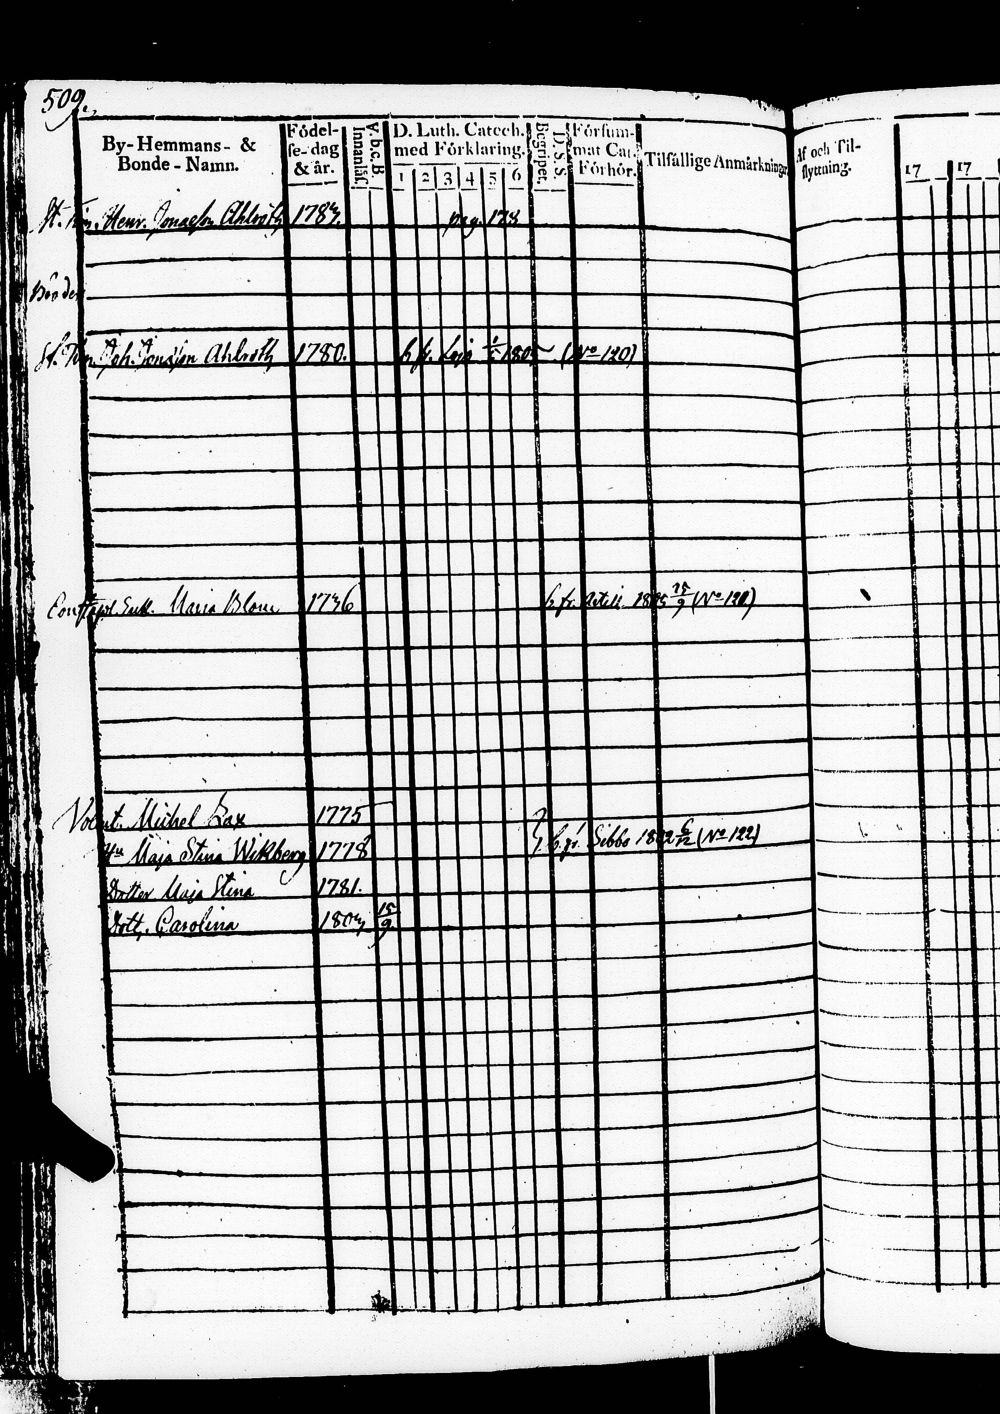 509.
By-Hemmans- & Bonde-Namn.
Födelse-dag & år.
V. b. c. B.
Innanläs.
D. Luth. Catech. med Förklaring.
1 2 3 4 5 6
Begripet.
D. S. S.
Försummat Cat. Förhör.
Tilfällige Anmärkningar
Af och Tilflyttning.
17 17
St. Tim. Henr. Jonasson Ahlroth 1783. pag. 178
St. Tim. Joh. Jonasson Ahlroth 1780. h. fr. Lojo 1805 (No 120)
Enk. Maria Blom 1736 h. fr. 1805 15/9 (No 121)
Volunt. Michel Lax 1775
Hu Maja Stina Wikberg 1778 h. fr. Sibbo 1802 6/12 (No 122)
Dotter Maja Stina 1781.
Dott. Carolina 1803 15/9